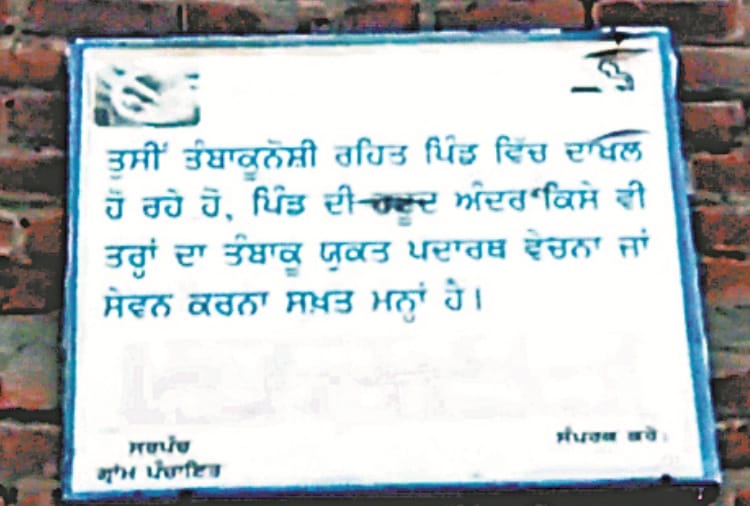 ਤੁਸੀਂ ਤੰਬਾਕੂਨੋਸ਼ੀ ਰਹਿਤ ਪਿੰਡ ਵਿੱਚ ਦਾਖਲ
ਹੋ ਰਹੇ ਹੋ, ਪਿੰਡ ਦੀ ਹਦੂਦ ਅੰਦਰ ਕਿਸੇ ਵੀ
ਤਰ੍ਹਾਂ ਦਾ ਤੰਬਾਕੂ ਯੁਕਤ ਪਦਾਰਥ ਵੇਚਨਾ ਜਾਂ
ਸੇਵਨ ਕਰਨਾ ਸਖ਼ਤ ਮਨ੍ਹਾਂ ਹੈ।
ਸੰਪਰਕ ਕਰੋ
ਸਰਪੰਚ
ਗ੍ਰਾਮ ਪੰਚਾਇਤ